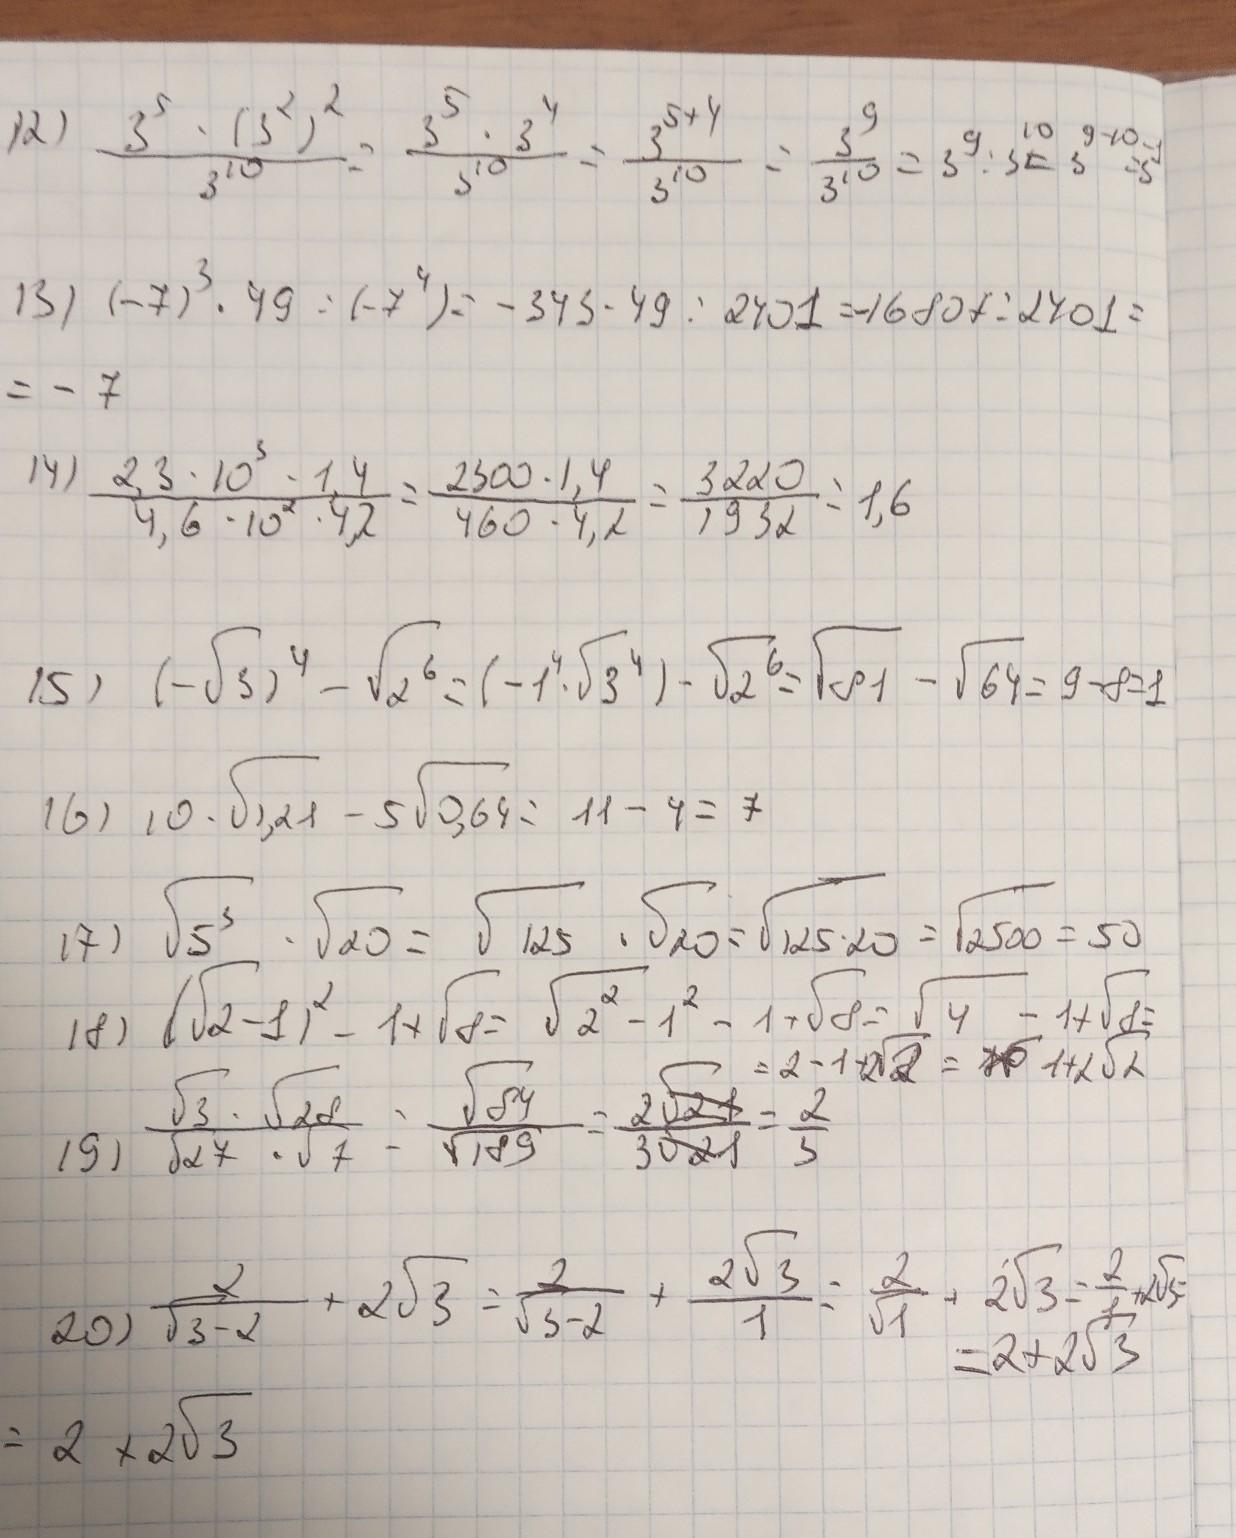 12) 3^5 · (3^2)^2 / 3^10 = 3^5 · 3^4 / 3^10 = 3^(5+4) / 3^10 = 3^9 / 3^10 = 3^9 : 3^10 = 3^(9-10) = 3^-1
13) (-7)^3 · 49 : (-7^4) = -343 · 49 : 2401 = -16807 : 2401 =
= - 7
14) 2,3 · 10^3 · 1,4 / 4,6 · 10^2 · 4,2 = 2300 · 1,4 / 460 · 4,2 = 3220 / 1932 = 1,6
15) (-√3)^4 - √2^6 = (-1^4 · √3^4) - √2^6 = √81 - √64 = 9 - 8 = 1
16) 10 · √1,21 - 5√0,64 = 11 - 4 = 7
17) √5^3 · √20 = √125 · √20 = √125·20 = √2500 = 50
18) (√2-1)^2 - 1+√8 = √2^2 - 1^2 - 1+√8 = √4 - 1+√8 =
= 2 - 1+2√2 = 1+2√2
19) √3 · √28 / √27 · √7 = √84 / √189 = 2√21 / 3√21 = 2/3
20) 2 / √3-2 + 2√3 = 2 / √3-2 + 2√3 / 1 = 2 / √1 + 2√3 = 2/1 + 2√3 =
= 2+2√3
= 2 + 2√3